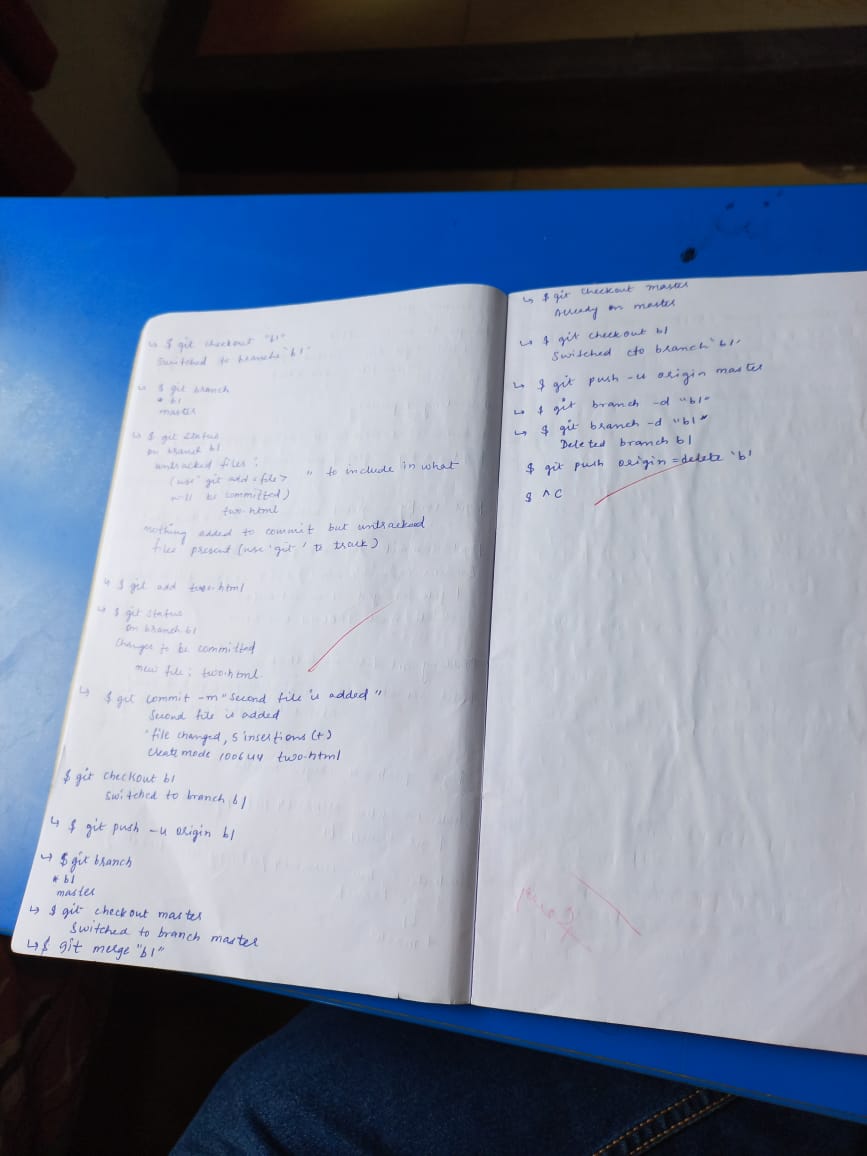 ↳ $ git checkout "b1"
Switched to branche "b1"
↳ $ git branch
* b1
master
↳ $ git status
on branch b1
untracked files :
(use "git add <file> " to include in what
will be committed)
two.html
nothing added to commit but untracked
files present (use 'git' to track)
↳ $ git add two.html
↳ $ git status
on branch b1
Changes to be committed
new file : two.html
↳ $ git commit -m "Second file is added"
Second file is added
1 file changed, 5 insertions (+)
create mode 100644 two.html
$ git checkout b1
switched to branch b1
↳ $ git push -u origin b1
↳ $ git branch
* b1
master
↳ $ git checkout master
Switched to branch master
↳ $ git merge "b1"
↳ $ git checkout master
Already on master
↳ $ git checkout b1
Switched to branch "b1"
↳ $ git push -u origin master
↳ $ git branch -d "b1"
↳ $ git branch -d "b1"
Deleted branch b1
$ git push origin =delete "b1
$ ^C